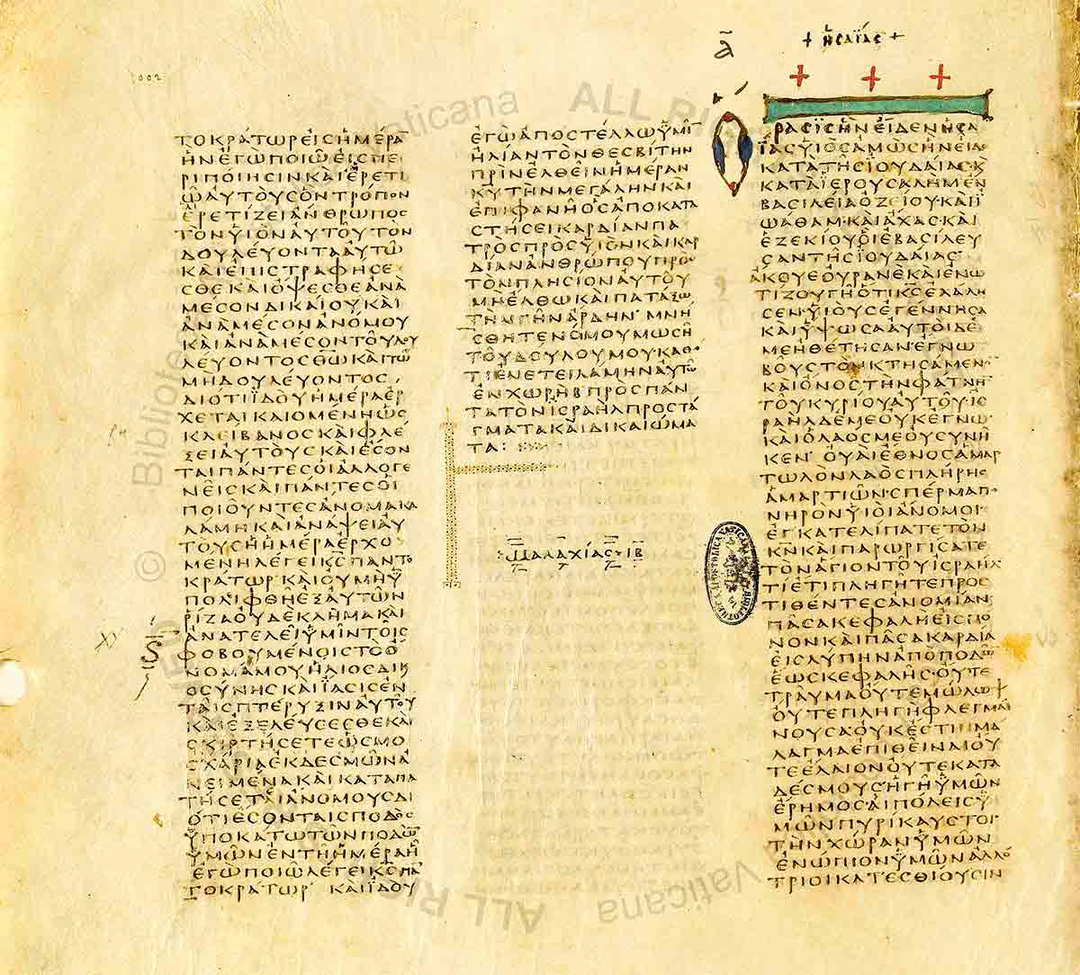 ΗϹΑΙΑϹ
ΤΟΚΡΑΤΩΡΕΙϹΗΜΕΡΑ
ΗΝΕΓΩΠΟΙΩΕΙϹΠΕ
ΡΙΠΟΙΗϹΙΝΚΑΙΕΡΕΤΙ
ΩΑΥΤΟΥϹΟΝΤΡΟΠΟΝ
ΕΡΕΤΙΖΕΙΑΝΘΡΩΠΟϹ
ΤΟΝΥΙΟΝΑΥΤΟΥΤΟΝ
ΔΟΥΛΕΥΟΝΤΑΑΥΤΩ
ΚΑΙΕΠΙϹΤΡΑΦΗϹΕ
ϹΘΕΚΑΙΟΨΕϹΘΕΑΝΑ
ΜΕϹΟΝΔΙΚΑΙΟΥΚΑΙ
ΑΝΑΜΕϹΟΝΑΝΟΜΟΥ
ΚΑΙΑΝΑΜΕϹΟΝΤΟΥΔΟΥ
ΛΕΥΟΝΤΟϹΘΩΚΑΙΤΟΥ
ΜΗΔΟΥΛΕΥΟΝΤΟϹ
ΔΙΟΤΙΪΔΟΥΗΜΕΡΑΕΡ
ΧΕΤΑΙΚΑΙΟΜΕΝΗΩϹ
ΚΛΕΙΒΑΝΟϹΚΑΙΦΛΕ
ΞΕΙΑΥΤΟΥϹΚΑΙΕϹΟΝ
ΤΑΙΠΑΝΤΕϹΟΙΑΛΛΟΓΕ
ΝΕΙϹΚΑΙΠΑΝΤΕϹΟΙ
ΠΟΙΟΥΝΤΕϹΑΝΟΜΑΚΑ
ΛΑΜΗΚΑΙΑΝΑΨΕΙΑΥ
ΤΟΥϹΗΗΜΕΡΑΕΡΧΟ
ΜΕΝΗΛΕΓΕΙΚϹΠΑΝΤΟ
ΚΡΑΤΩΡΚΑΙΟΥΜΗΫ
ΠΟΛΙΦΘΗΕΞΑΥΤΩΝ
ΡΙΖΑΟΥΔΕΚΛΗΜΑΚΑΙ
ΑΝΑΤΕΛΕΙΫΜΙΝΤΟΙϹ
ΦΟΒΟΥΜΕΝΟΙϹΤΟΟ
ΝΟΜΑΜΟΥΗΛΙΟϹΔΙΚΑΙ
ΟϹΥΝΗϹΚΑΙΪΑϹΙϹΕΝ
ΤΑΙϹΠΤΕΡΥΞΙΝΑΥΤΟΥ
ΚΑΙΕΞΕΛΕΥϹΕϹΘΕΚΑΙ
ϹΚΙΡΤΗϹΕΤΕΩϹΜΟ
ϹΧΑΡΙΑΕΚΔΕϹΜΩΝΑ
ΝΕΙΜΕΝΑΚΑΙΚΑΤΑΠΑ
ΤΗϹΕΤΑΙΑΝΟΜΟΥϹΔΙ
ΟΤΙΕϹΟΝΤΑΙϹΠΟΔΟϹ
ΫΠΟΚΑΤΩΤΩΝΠΟΔΩΝ
ΫΜΩΝΕΝΤΗΗΜΕΡΑΗ
ΕΓΩΠΟΙΩΛΕΓΕΙΚϹΠΑ
ΤΟΚΡΑΤΩΡ ΚΑΙΪΔΟΥ
ΕΓΩΑΠΟϹΤΕΛΛΩΫΜΙ
ΗΛΙΑΝΤΟΝΘΕϹΒΙΤΗΝ
ΠΡΙΝΕΛΘΕΙΝΗΜΕΡΑΝ
ΚΥΤΗΝΜΕΓΑΛΗΝΚΑΙ
ΕΠΙΦΑΝΗΟϹΑΠΟΚΑΤΑ
ϹΤΗϹΕΙΚΑΡΔΙΑΝΠΑ
ΤΡΟϹΠΡΟϹΥΙΟΝΚΑΙΚΑΡ
ΔΙΑΝΑΝΘΡΩΠΟΥΠΡΟϹ
ΤΟΝΠΛΗϹΙΟΝΑΥΤΟΥ
ΜΗΕΛΘΩΚΑΙΠΑΤΑΞΩ
ΤΗΝΓΗΝΑΡΔΗΝ ΜΝΗ
ϹΘΗΤΕΝΟΜΟΥΜΩϹΗ
ΤΟΥΔΟΥΛΟΥΜΟΥΚΑΘΟ
ΤΙΕΝΕΤΕΙΛΑΜΗΝΑΥΤΩ
ΕΝΧΩΡΗΒΠΡΟϹΠΑΝ
ΤΑΤΟΝΙϹΡΑΗΛΠΡΟϹΤΑ
ΓΜΑΤΑΚΑΙΔΙΚΑΙΩΜΑ
ΤΑ:
ΜΑΛΑΧΙΑϹ ΙΒ
ΟΡΑϹΙϹΗΝΕΙΔΕΝΗϹΑ
ΪΑϹΥΙΟϹΑΜΩϹΗΝΕΙΔΕ
ΚΑΤΑΤΗϹΪΟΥΔΑΙΑϹΚ
ΚΑΤΑΪΕΡΟΥϹΑΛΗΜΕΝ
ΒΑϹΙΛΕΙΑΟΖΕΙΟΥΚΑΙΪ
ΩΑΘΑΜΚΑΙΑΧΑΖΚΑΙ
ΕΖΕΚΙΟΥΟΙΕΒΑϹΙΛΕΥ
ϹΑΝΤΗϹΪΟΥΔΑΙΑϹ
ΑΚΟΥΕΟΥΡΑΝΕΚΑΙΕΝΩ
ΤΙΖΟΥΓΗΟΤΙΚϹΕΛΑΛΗ
ϹΕΝΥΙΟΥϹΕΓΕΝΝΗϹΑ
ΚΑΙΥΨΩϹΑΑΥΤΟΙΔΕ
ΜΕΗΘΕΤΗϹΑΝΕΓΝΩ
ΒΟΥϹΤΟΝΚΤΗϹΑΜΕΝ
ΚΑΙΟΝΟϹΤΗΝΦΑΤΝΗ
ΤΟΥΚΥΡΙΟΥΑΥΤΟΥΙϹ
ΡΑΗΛΔΕΜΕΟΥΚΕΓΝΩ
ΚΑΙΟΛΑΟϹΜΕΟΥϹΥΝΗ
ΚΕΝ ΟΥΑΙΕΘΝΟϹΑΜΑΡ
ΤΩΛΟΝΛΑΟϹΠΛΗΡΗϹ
ΑΜΑΡΤΙΩΝϹΠΕΡΜΑΠΟ
ΝΗΡΟΝΥΙΟΙΑΝΟΜΟΙ
ΕΓΚΑΤΕΛΙΠΑΤΕΤΟΝ
ΚΝΚΑΙΠΑΡΩΡΓΙϹΑΤΕ
ΤΟΝΑΓΙΟΝΤΟΥΙϹΡΑΗΛ
ΤΙΕΤΙΠΛΗΓΗΤΕΠΡΟϹ
ΤΙΘΕΝΤΕϹΑΝΟΜΙΑΝ
ΠΑϹΑΚΕΦΑΛΗΕΙϹΠΟ
ΝΟΝΚΑΙΠΑϹΑΚΑΡΔΙΑ
ΕΙϹΛΥΠΗΝΑΠΟΠΟΔΩ
ΕΩϹΚΕΦΑΛΗϹΟΥΤΕ
ΤΡΑΥΜΑΟΥΤΕΜΩΛΩΨ
ΟΥΤΕΠΛΗΓΗΦΛΕΓΜΑΙ
ΝΟΥϹΑΟΥΚΕϹΤΙΝΜΑ
ΛΑΓΜΑΕΠΙΘΕΙΝΑΙΟΥ
ΤΕΕΛΑΙΟΝΟΥΤΕΚΑΤΑ
ΔΕϹΜΟΥϹΗΓΗΫΜΩΝ
ΕΡΗΜΟϹΑΙΠΟΛΕΙϹΫ
ΜΩΝΠΥΡΙΚΑΥϹΤΟΙ
ΤΗΝΧΩΡΑΝΫΜΩΝ
ΕΝΩΠΙΟΝΫΜΩΝΑΛΛΟ
ΤΡΙΟΙΚΑΤΕϹΘΙΟΥϹΙΝ